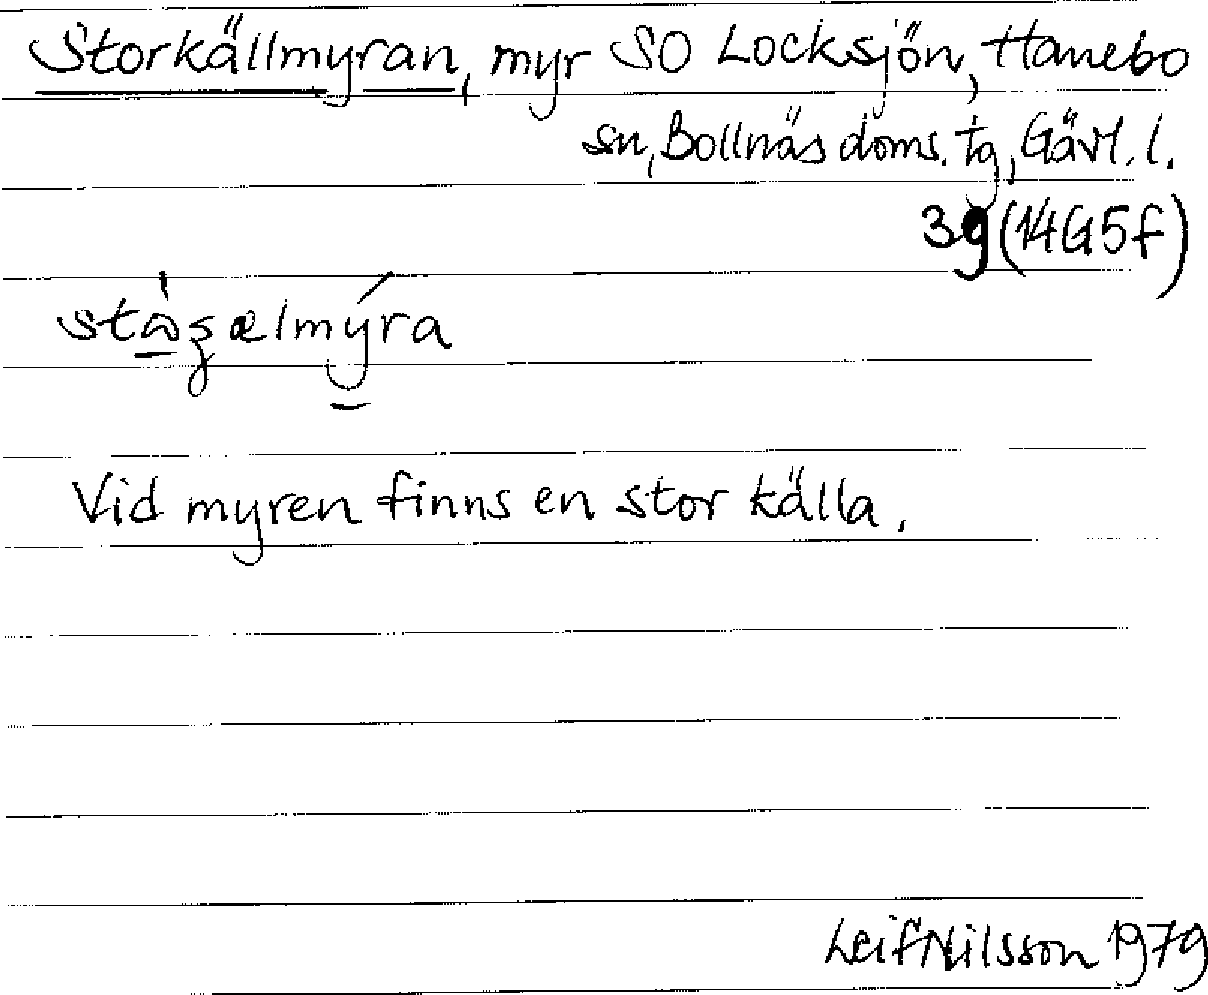 Storkällmyran, myr SO Locksjön, Hanebo
sn, Bollnäs doms. tg, Gävl. l.
3g (14G5f)
Vid myren finns en stor källa.
Leif Nilsson 1979